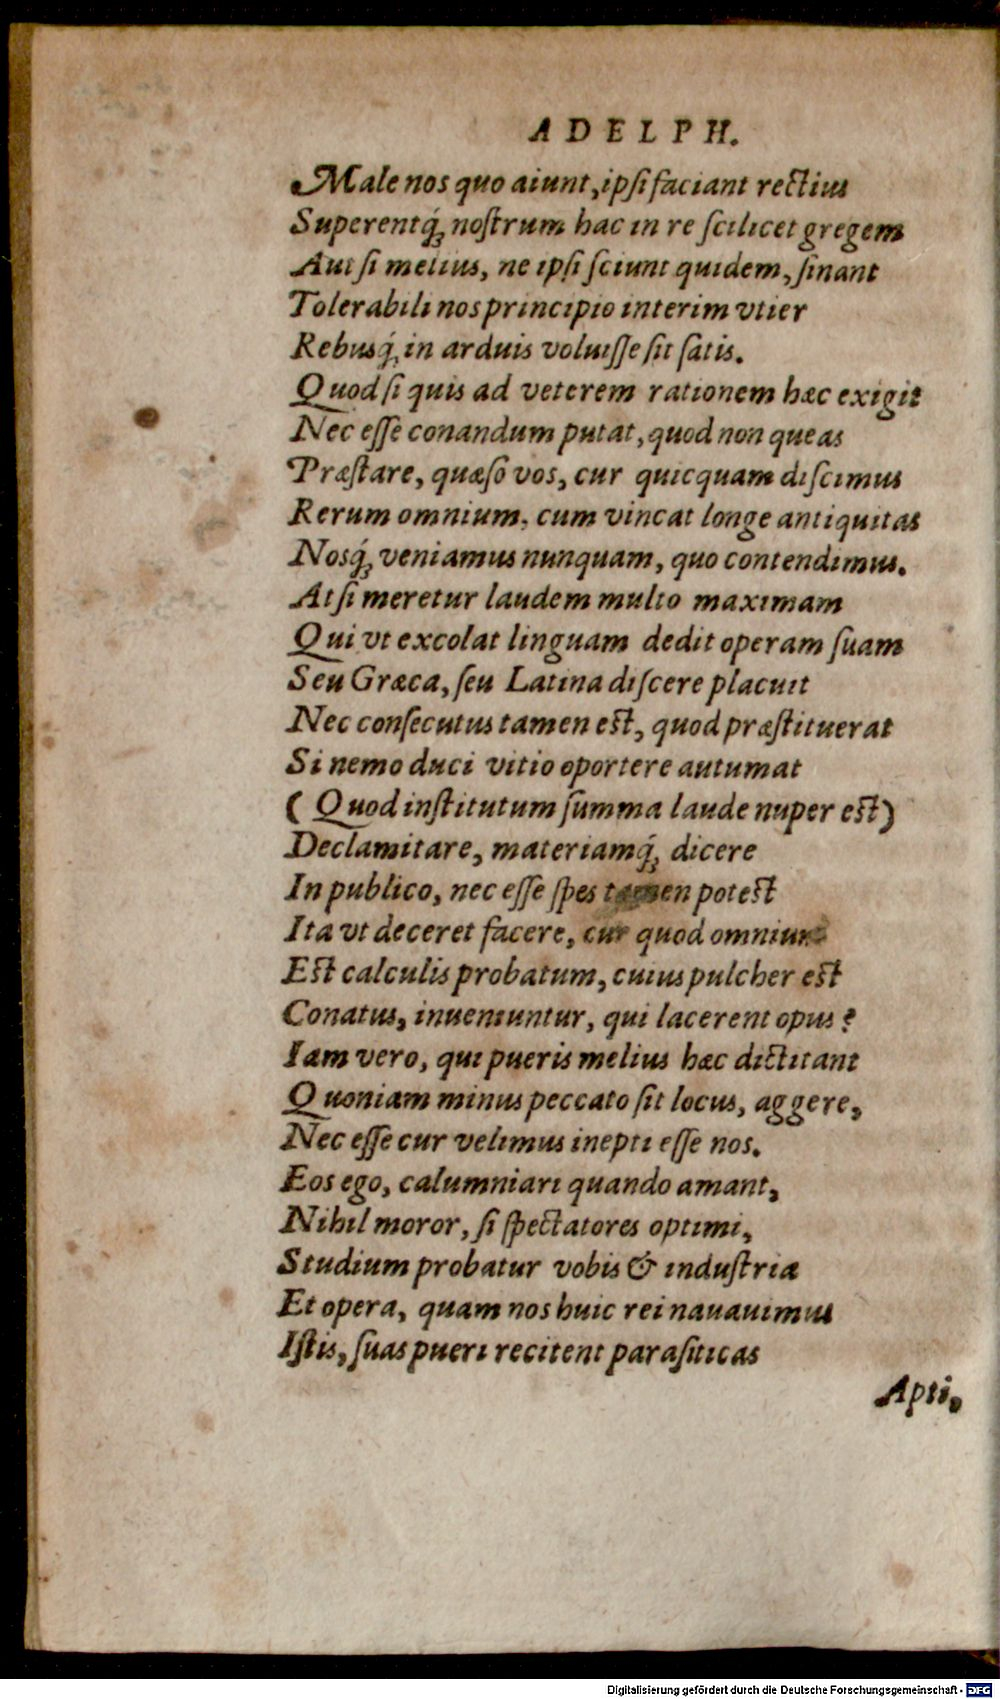 ADELPH.
Male nos quo aiunt, ipsi faciant rectius
Superentq́; nostrum hac in re scilicet gregem
Aut si melius, ne ipsi sciunt quidem, sinant
Tolerabili nos principio interim vtier
Rebusq́; in arduis voluisse sit satis.
Quod si quis ad veterem rationem hæc exigit
Nec esse conandum putat, quod non queas
Præstare, quæso vos, cur quicquam discimus
Rerum omnium, cum vincat longe antiquitas
Nosq́; veniamus nunquam, quo contendimus.
At si meretur laudem multo maximam
Qui vt excolat linguam dedit operam suam
Seu Græca, seu Latina discere placuit
Nec consecutus tamen est, quod præstituerat
Si nemo duci vitio oportere autumat
(Quod institutum summa laude nuper est)
Declamitare, materiamq́; dicere
In publico, nec esse spes tamen potest
Ita vt deceret facere, cur quod omnium
Est calculis probatum, cuius pulcher est
Conatus, inueniuntur, qui lacerent opus?
Iam vero, qui pueris melius hæc dictitant
Quoniam minus peccato sit locus, aggere,
Nec esse cur velimus inepti esse nos.
Eos ego, calumniari quando amant,
Nihil moror, si spectatores optimi,
Studium probatur vobis & industria
Et opera, quam nos huic rei nauauimus
Istis, suas pueri recitent parasiticas
Apti,
Digitalisierung gefördert durch die Deutsche Forschungsgemeinschaft - DFG